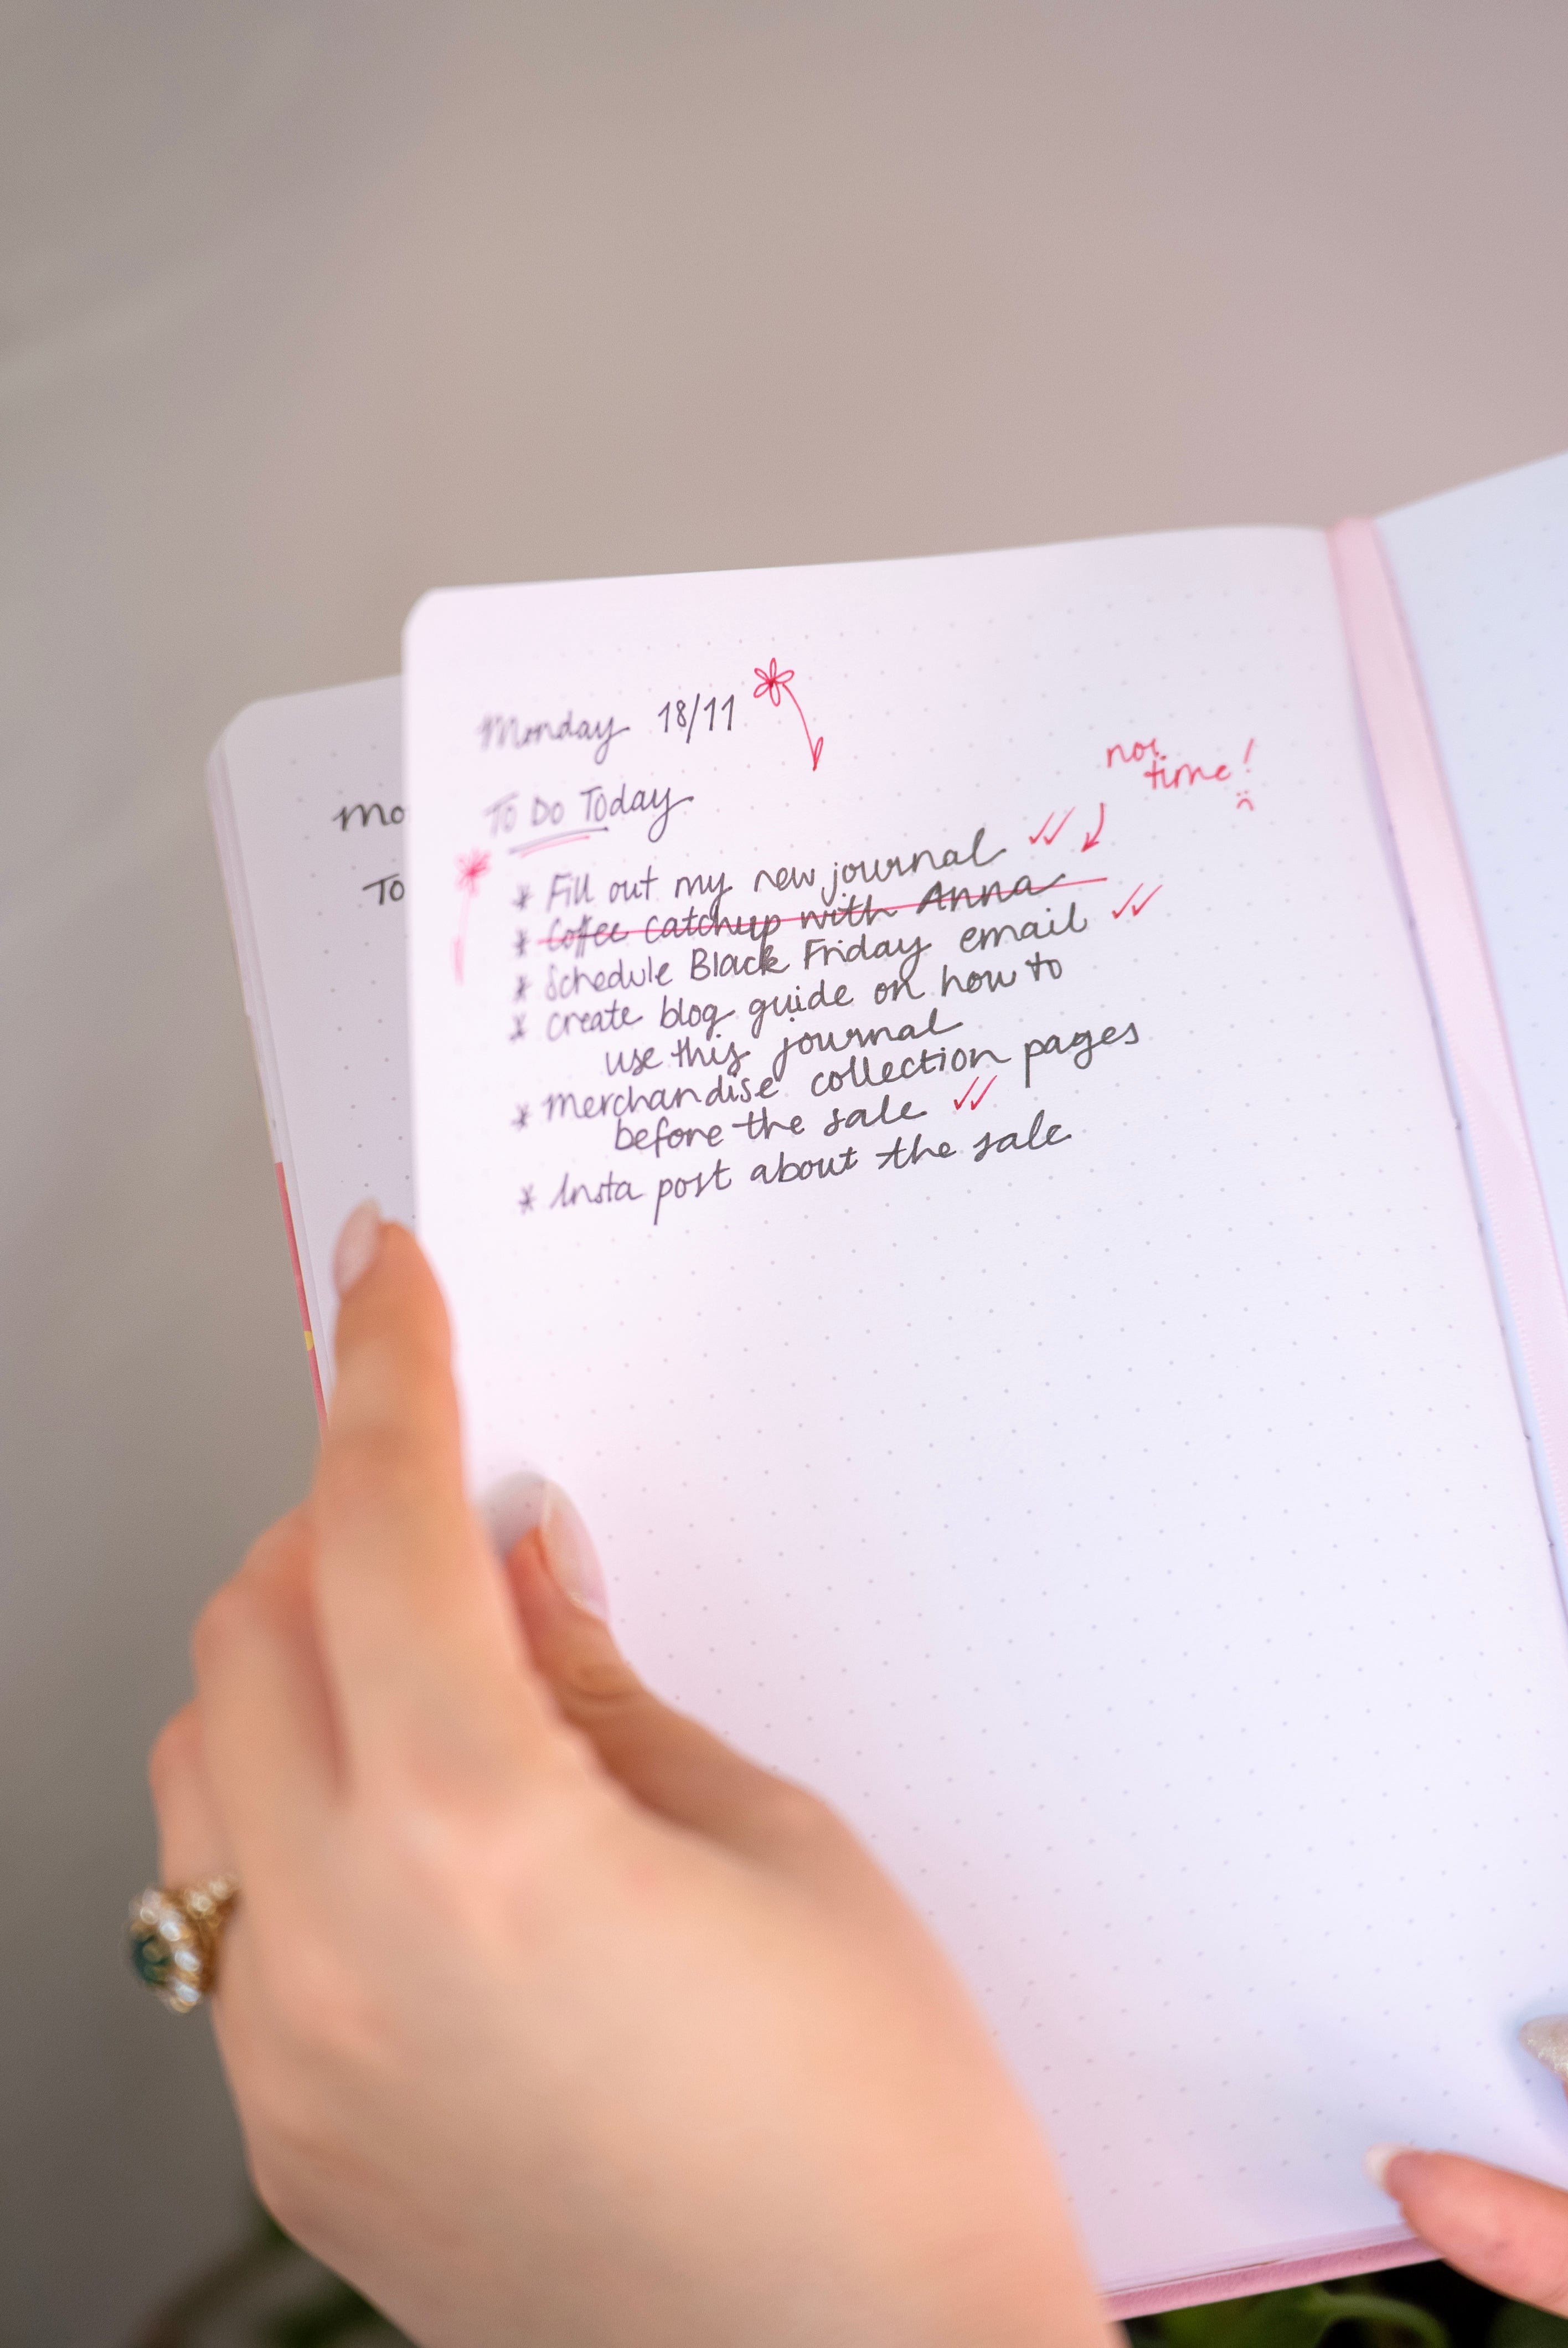 Monday 18/11
To Do Today
not
time!
* Fill out my new journal
* Coffee catchup with Anna
* Schedule Black Friday email
* create blog guide on how to
use this journal
* merchandise collection pages
before the sale
* Insta post about the sale
Mo
TO